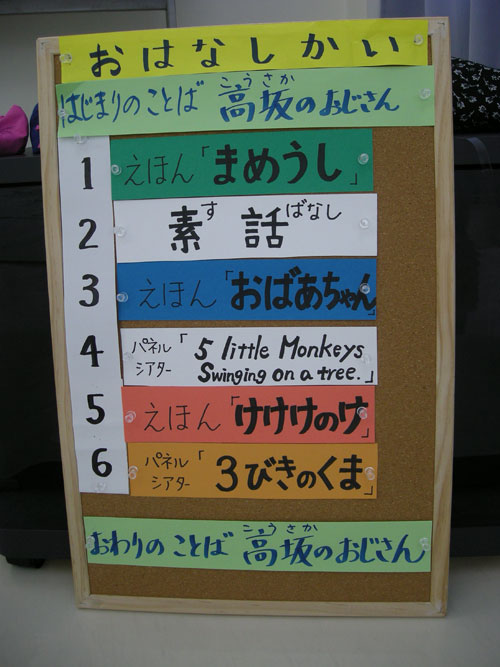 おはなしかい
はじまりのことば 高坂のおじさん
こうさか
1 えほん「まめうし」
2 素話
すばなし
3 えほん「おばあちゃん」
4 パネルシアター「5 little Monkeys
Swinging on a tree.」
5 えほん「けけけのけ」
6 パネルシアター「3びきのくま」
おわりのことば 高坂のおじさん
こうさか